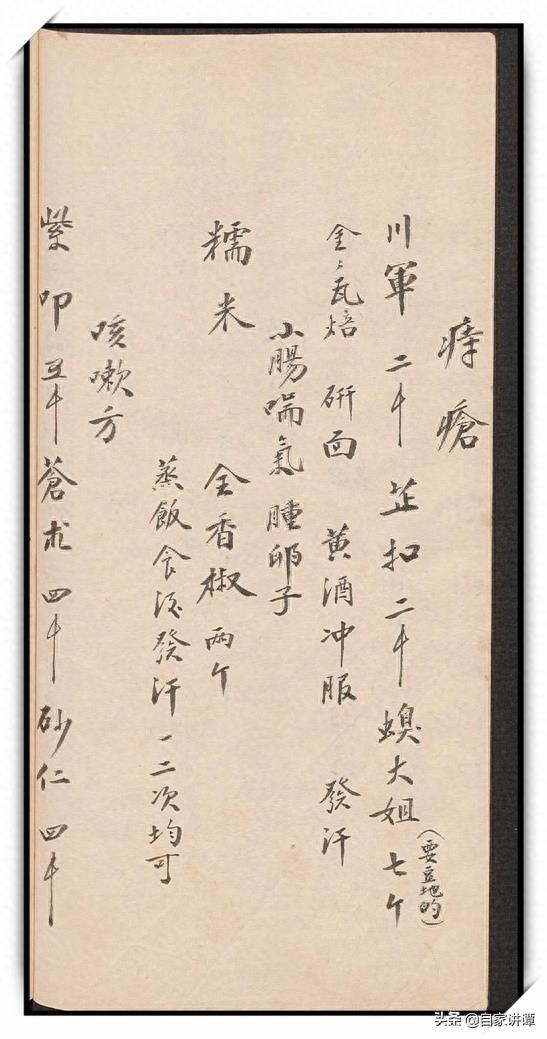 痔瘡
川軍 二个 芷扣 二个 螝大姐 七个
(要豆地的)
全と瓦焙 研面 黄酒冲服 發汗
小腸喘氣腫卵子
糯米 全香椒 两个
蒸飯食後發汗一二次均可
咳嗽方
紫叩 五个 蒼朮 四个 砂仁 四个
头条 @自家讲谭